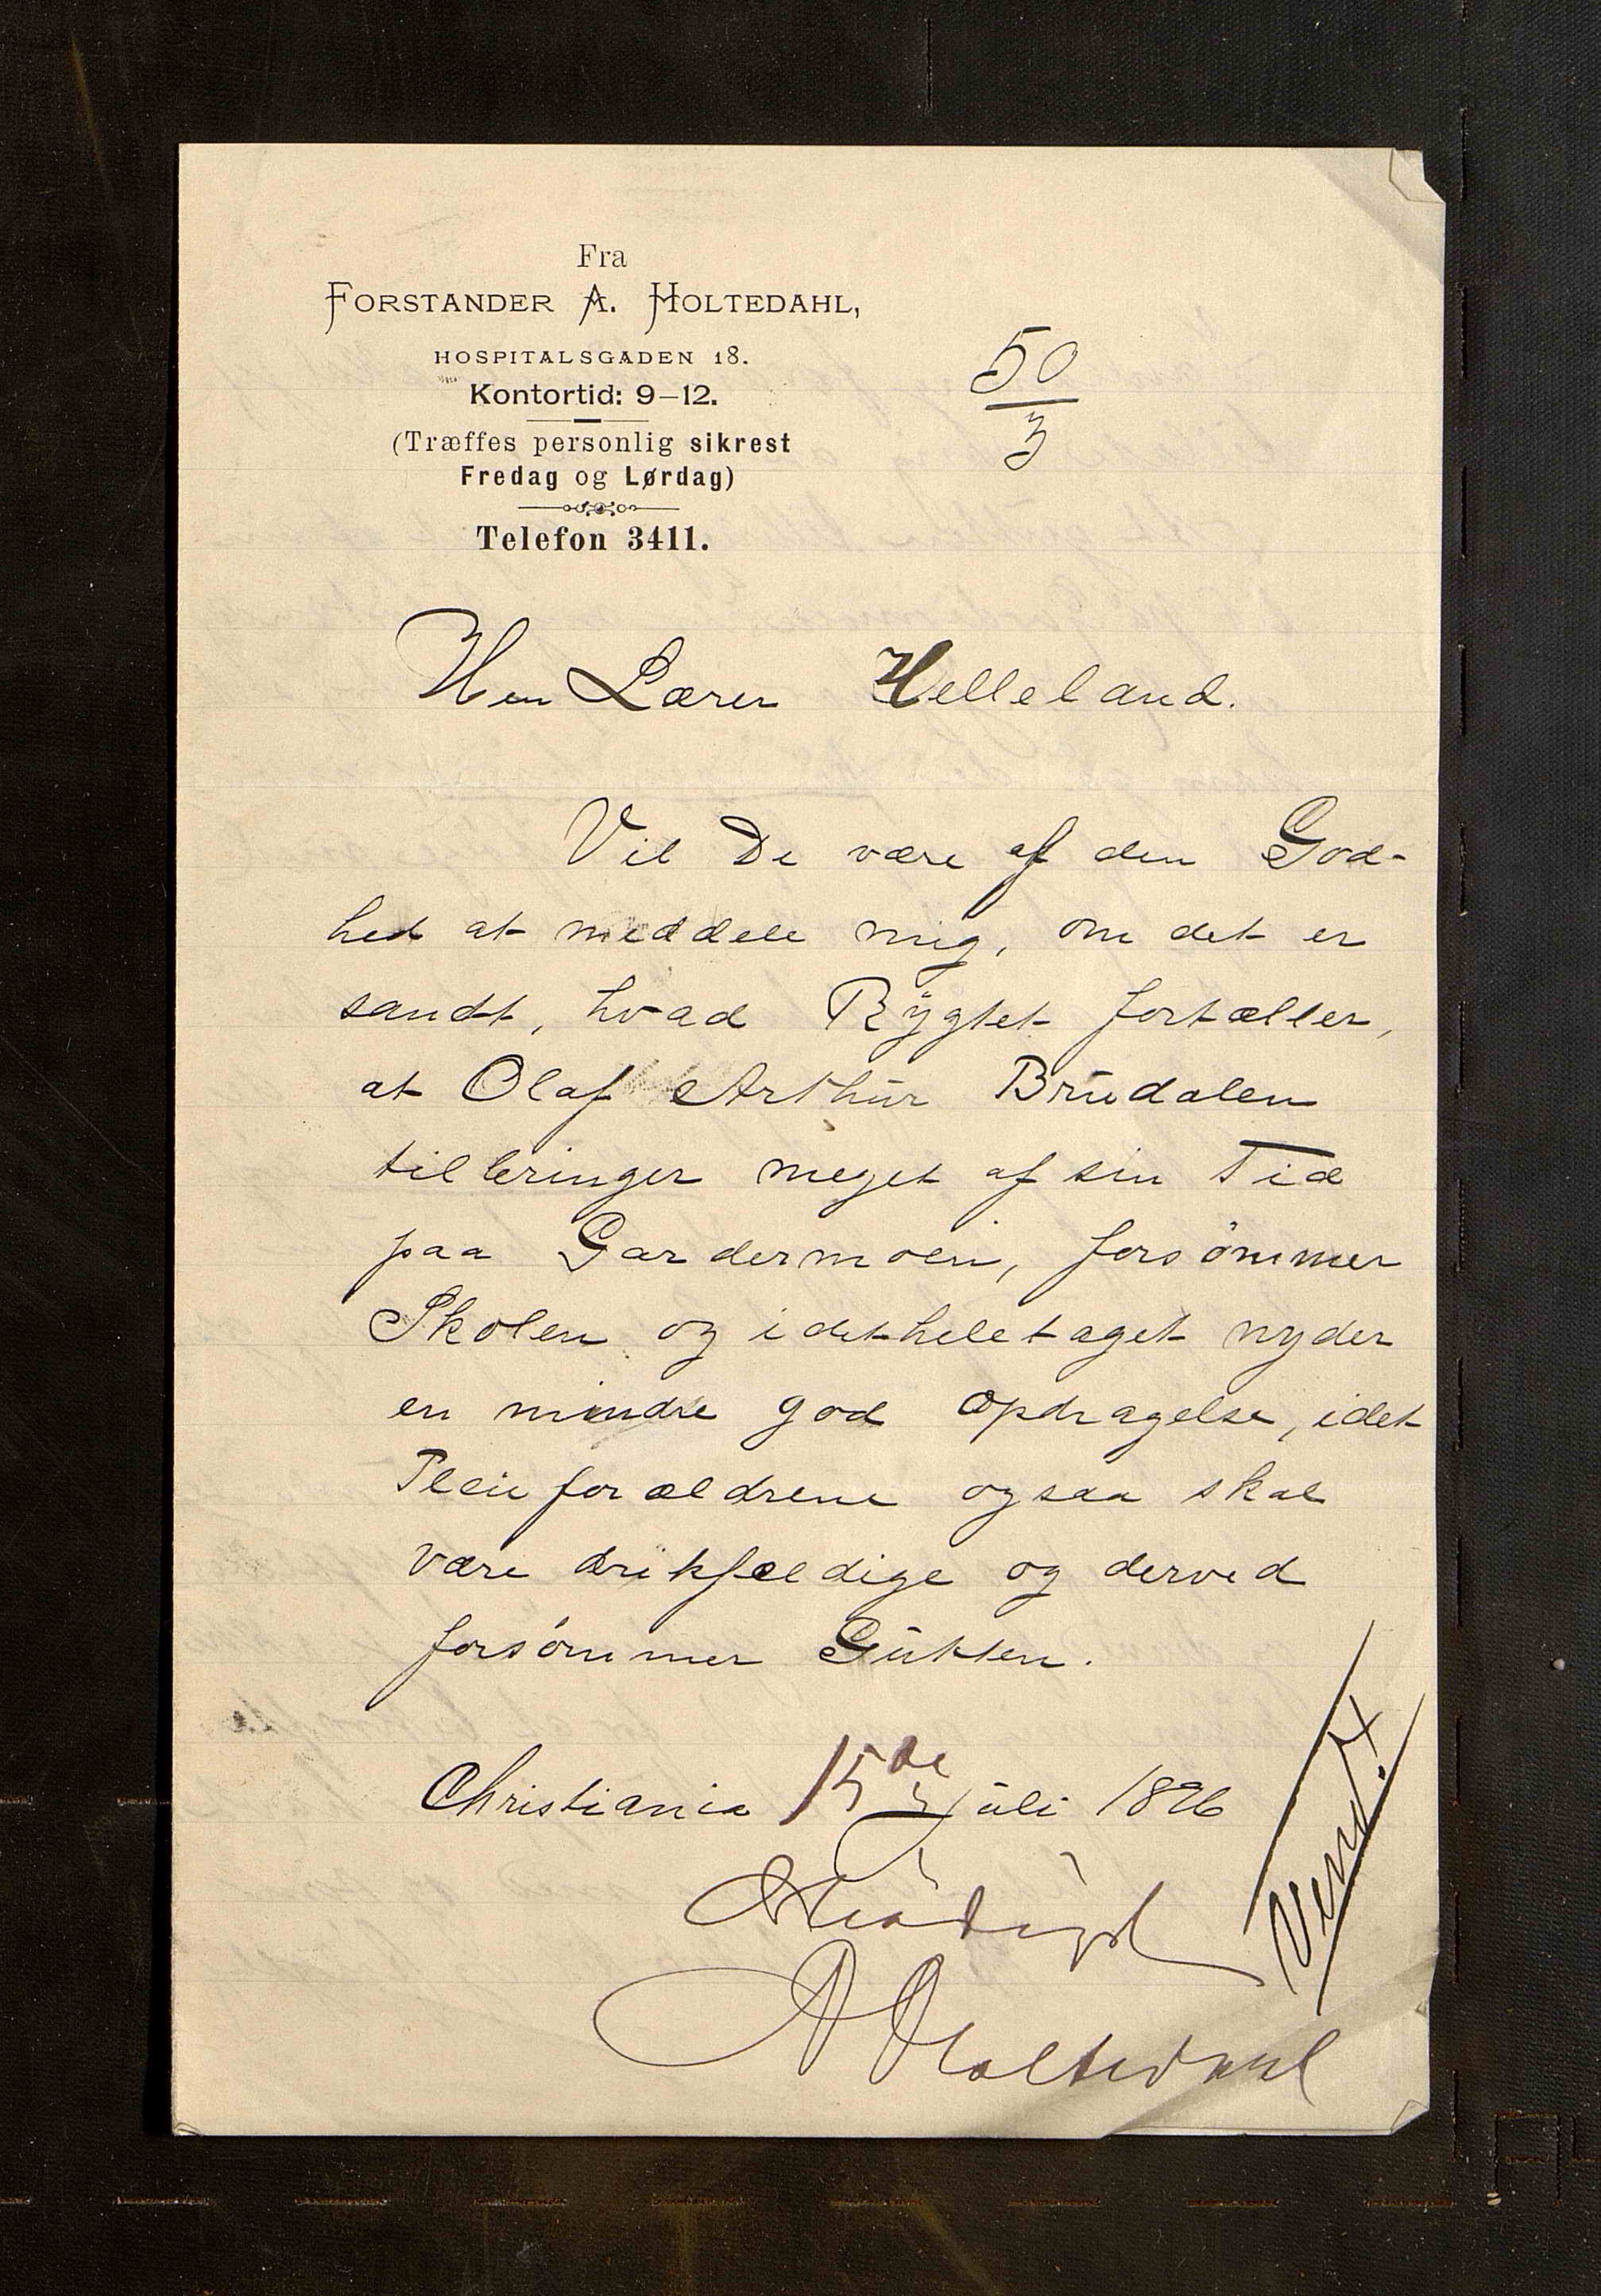 Fra
FORSTANDER A. HOLTEDAHL,
HOSPITALSGADEN 18.
Kontortid: 9–12.
(Træffes personlig sikrest
Fredag og Lørdag)
Telefon 3411.
50
3
Herr Lærer Helleland.
Vil De være af den God-
hed at meddele mig, om det er
sandt, hvad Rygtet fortæller,
at Olaf Arthur Brudalen
tilbringer meget af sin Tid
paa Gardermoen, forsömmer
Skolen og i det hele taget nyder
en mindre god Opdragelse, idet
Pleieforældrene ogsaa skal
være drikfældige og derved
forsömmer Gutten.
Christiania 15de Juli 1896
Ærbødigst
A Holtedahl
Vend!